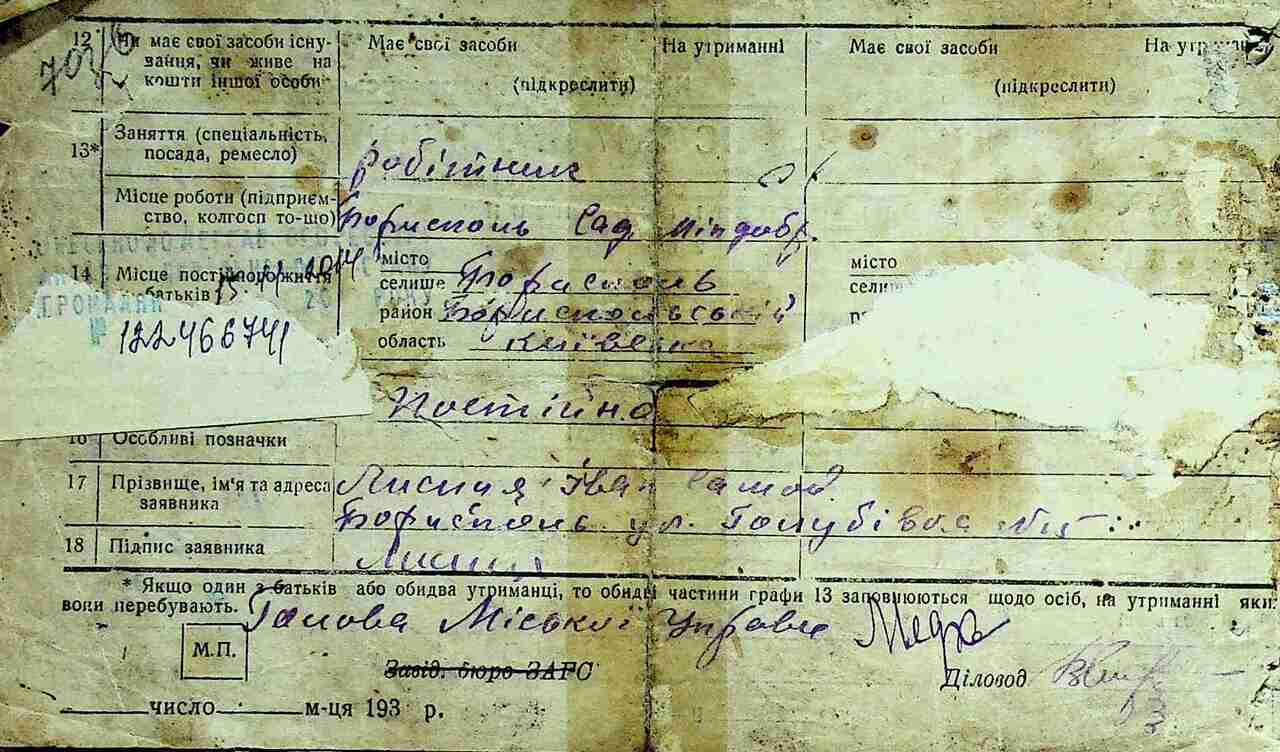 12 Чи має свої засоби існу-
вання, чи живе на
кошти іншої особи
Має свої засоби На утриманні
(підкреслити)
Має свої засоби
(підкреслити)
13* Заняття (спеціальність,
посада, ремесло)
робітник
Місце роботи (підприєм-
ство, колгосп то-що)
Бориспонь Сад
14 Місце
батьків
місто
селище Бориспонь
район Бориспольський
область Київська
місто
№ 122466741
Постійно
16 Особливі позначки
17 Прізвище, ім'я та адреса
заявника
Лисиця Іван
Бориспонь ул.
18 Підпис заявника
Лисиця
* Якщо один з батьків або обидва утриманці, то обидві частини графи 13 заповнюються щодо осіб, на утриманні яких
вони перебувають.
Голова Міської Управи
М.П.
Завід. бюро ЗАГС
Діловод
число м-ця 193 р.